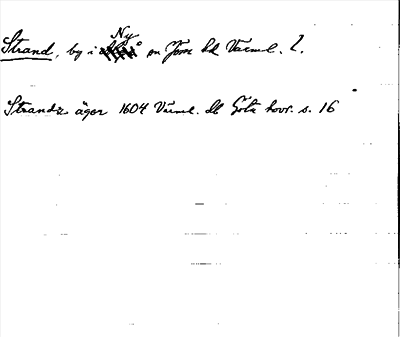 Ny
Strand, by i sn Jösse hd Värml. l.
Strand äger 1604 Värml. Göta hovr. s. 16